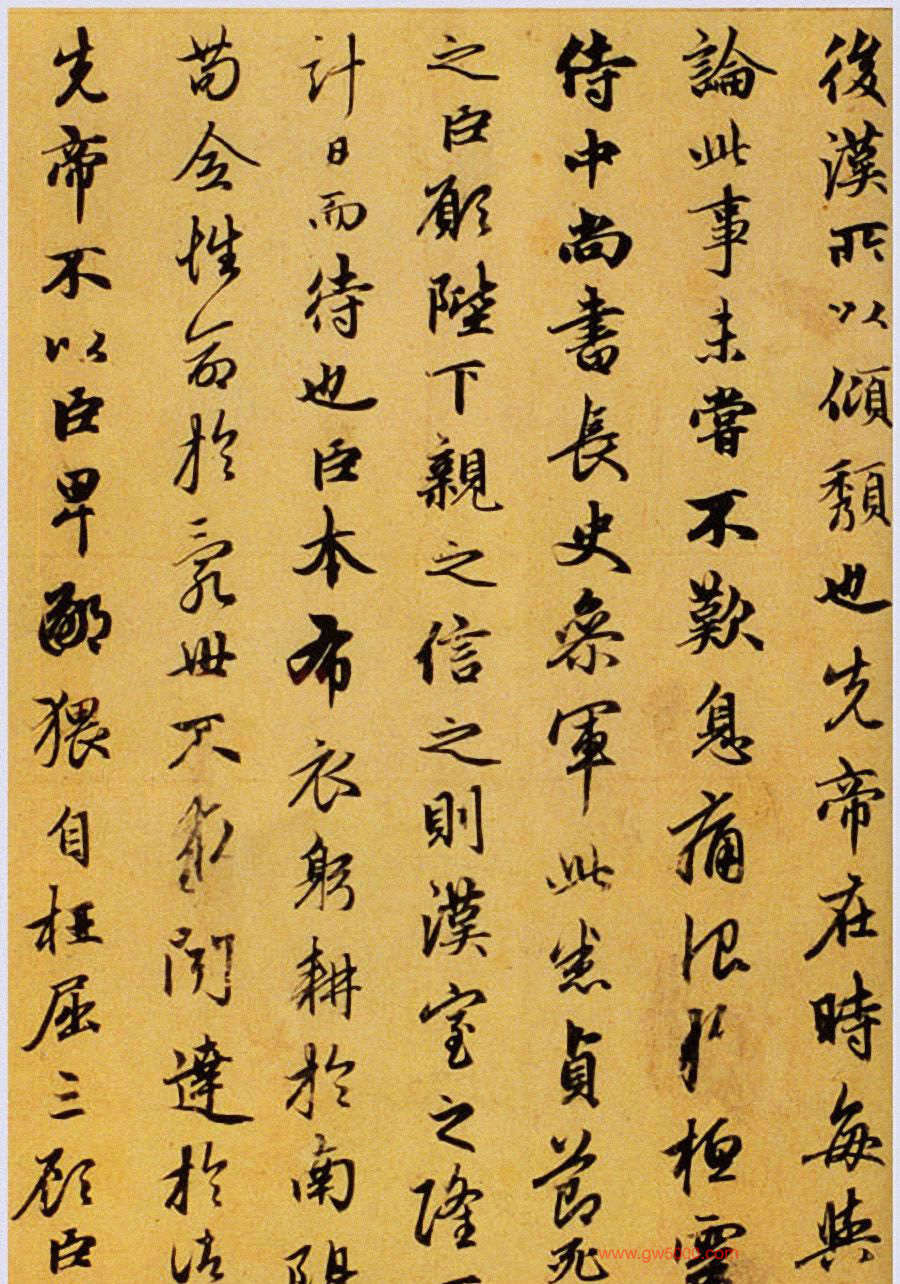 後漢所以傾頹也先帝在時每與
論此事未嘗不歎息痛恨於桓靈
侍中尚書長史參軍此悉貞節死
之臣願陛下親之信之則漢室之隆
計日而待也臣本布衣躬耕於南陽
苟全性命於亂世不求聞達於諸
先帝不以臣卑鄙猥自枉屈三顧臣
www.gw5000.com